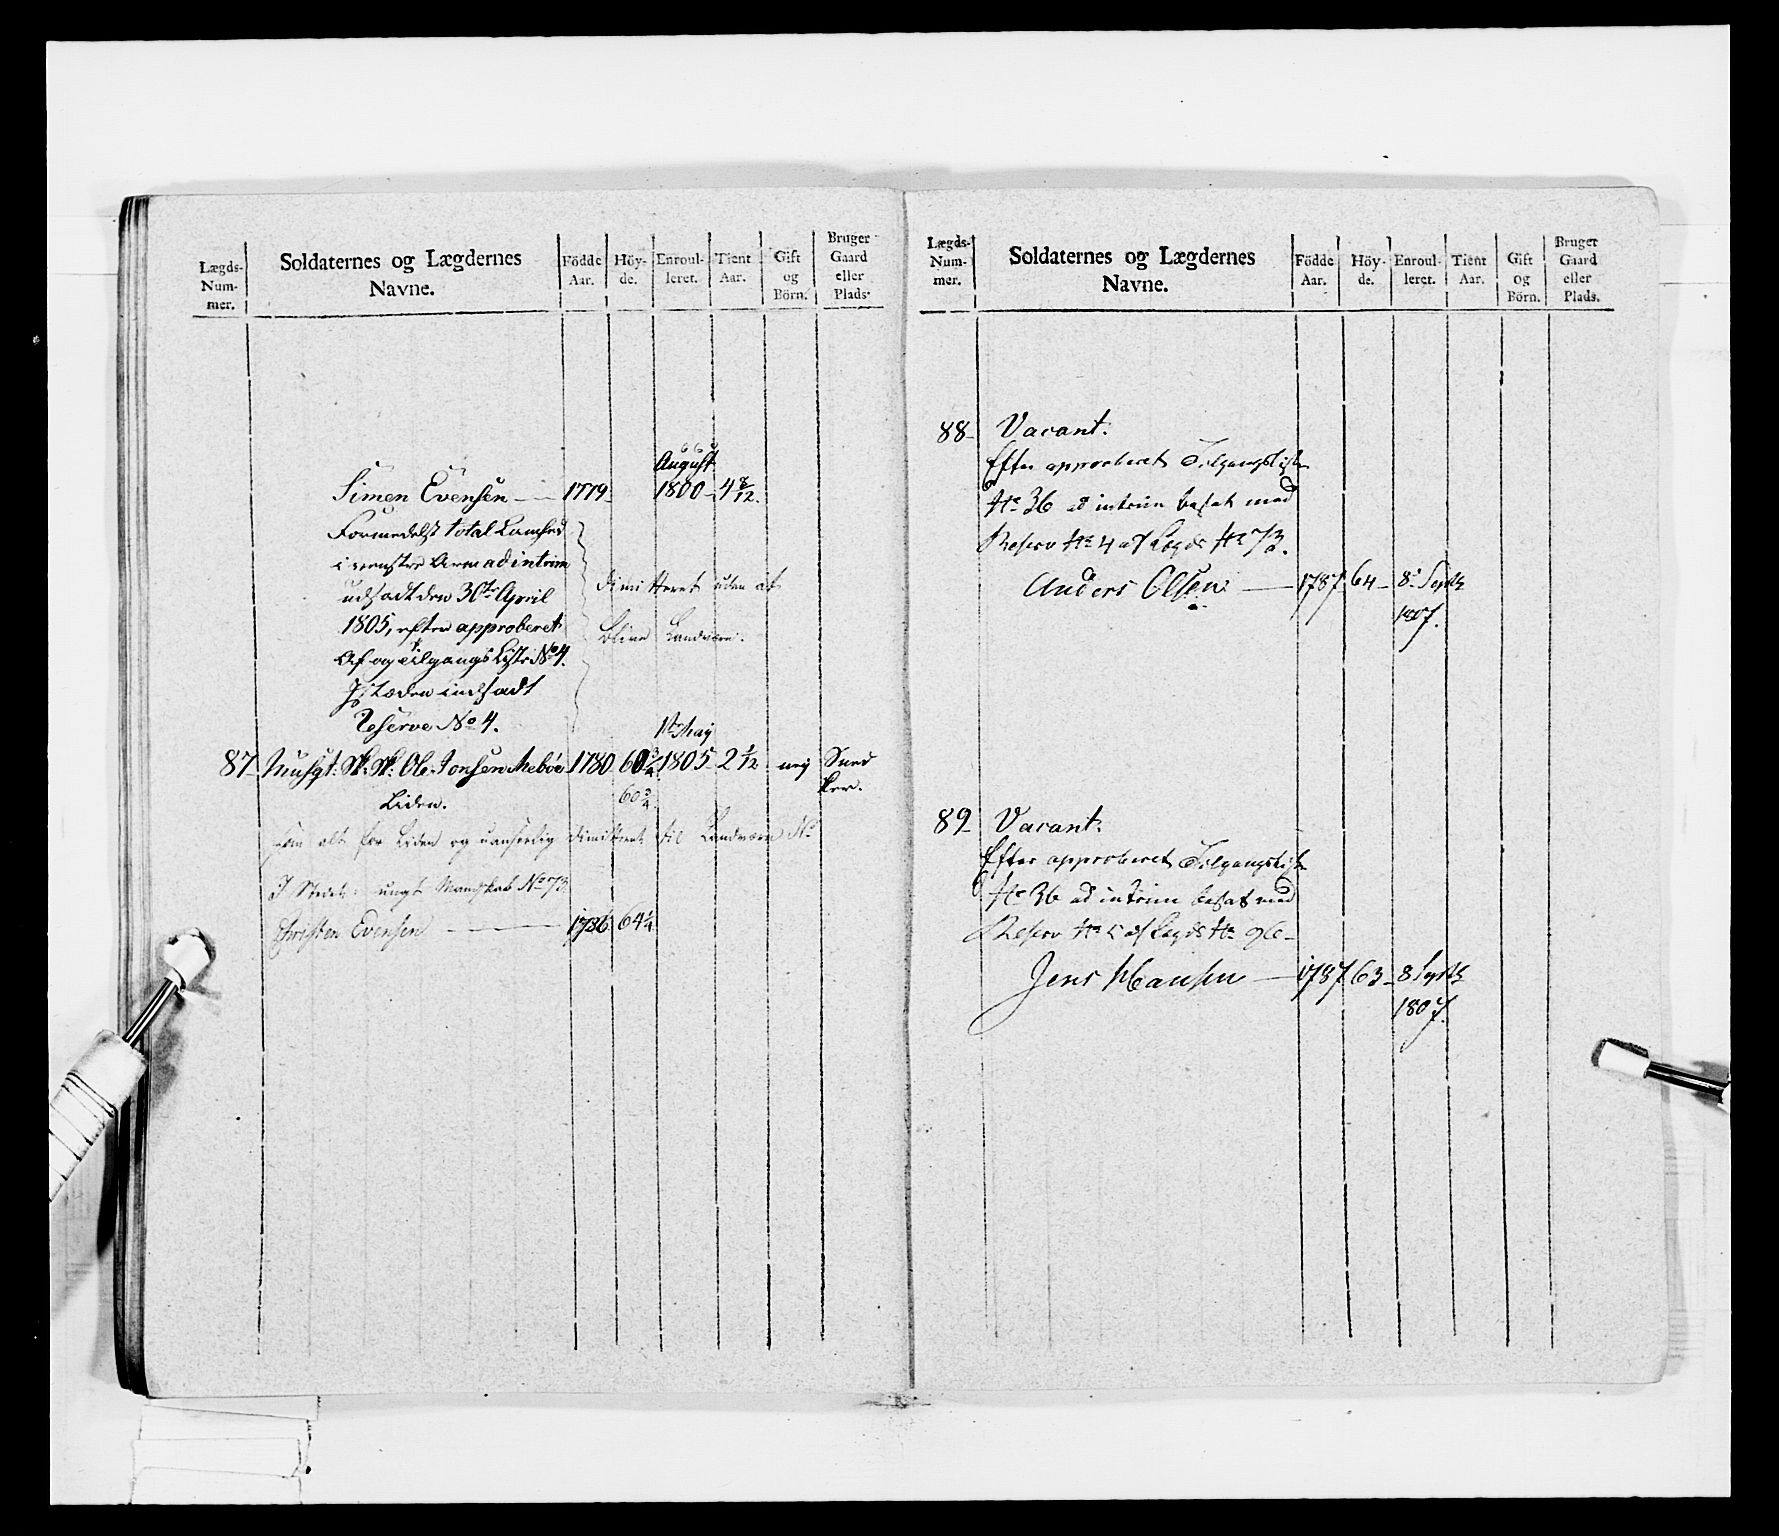 Lægds-
Num-
mer.
Soldaternes og Lægdernes
Navne.
Födde
Aar.
Höy-
de.
Enroul-
leret.
Tient
Aar.
Gift
og
Börn.
Bruger
Gaard
eller
Plads.
August
Simen Evensen - 1779 - 1800 - 4 8/12.
Formedelst total Lamhed
i venstre Arm ad interim
udsadt den 30te April
1805, efter approberet
Af og Tilgangs Liste No 4.
I Stæden indsadt
Reserve No 4.
dimitteret uden at
blive Landværn.
1te May
87 Musqt: Ole Jonsen Mebøe 1780 60 3/4 1805 2 5/12 nej Sned
ker.
Liden. 60 3/4
som alt for Liden og uanseelig dimitteret til Landværn No
I Stedet: ungt Mandskab No 73.
Christen Evensen - 1786 64 1/4
Lægds-
Num-
mer.
Soldaternes og Lægdernes
Navne.
Födde
Aar.
Höy-
de.
Enroul-
leret.
Tient
Aar.
Gift
og
Börn.
Bruger
Gaard
eller
Plads.
88 - Vacant.
Efter approberet Tilgangsliste
No 36 ad interim besat med
Reserv No 4 af Legds No 73.
Anders Olsen - 1787 64 - 8de Septb
1807.
89 - Vacant.
Efter approberet Tilgangsliste
No 36 ad interim besat med
Reserv No 5 af Legds No 96 -
Jens Hansen - 1787 63 - 8 Septb
1807.